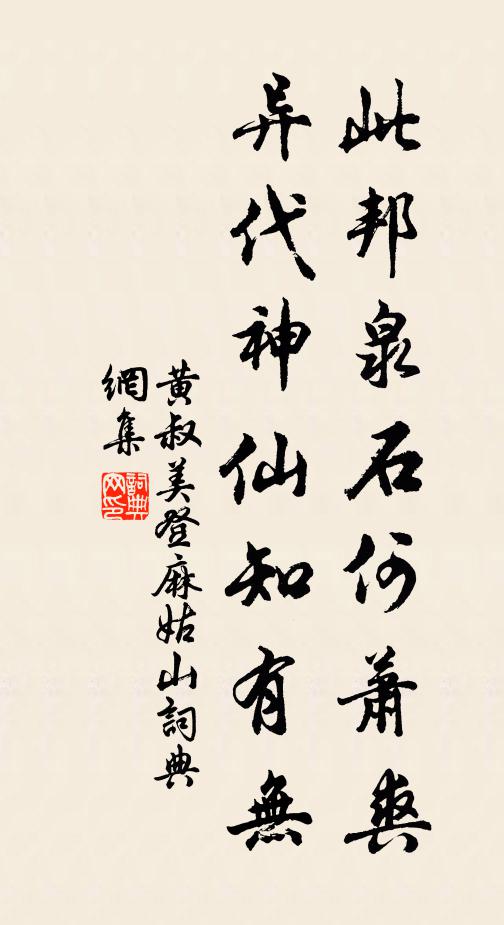 此邦泉石何蕭爽
异代神仙知有無
黄叔美登麻姑山詞典
網集
詞典網印